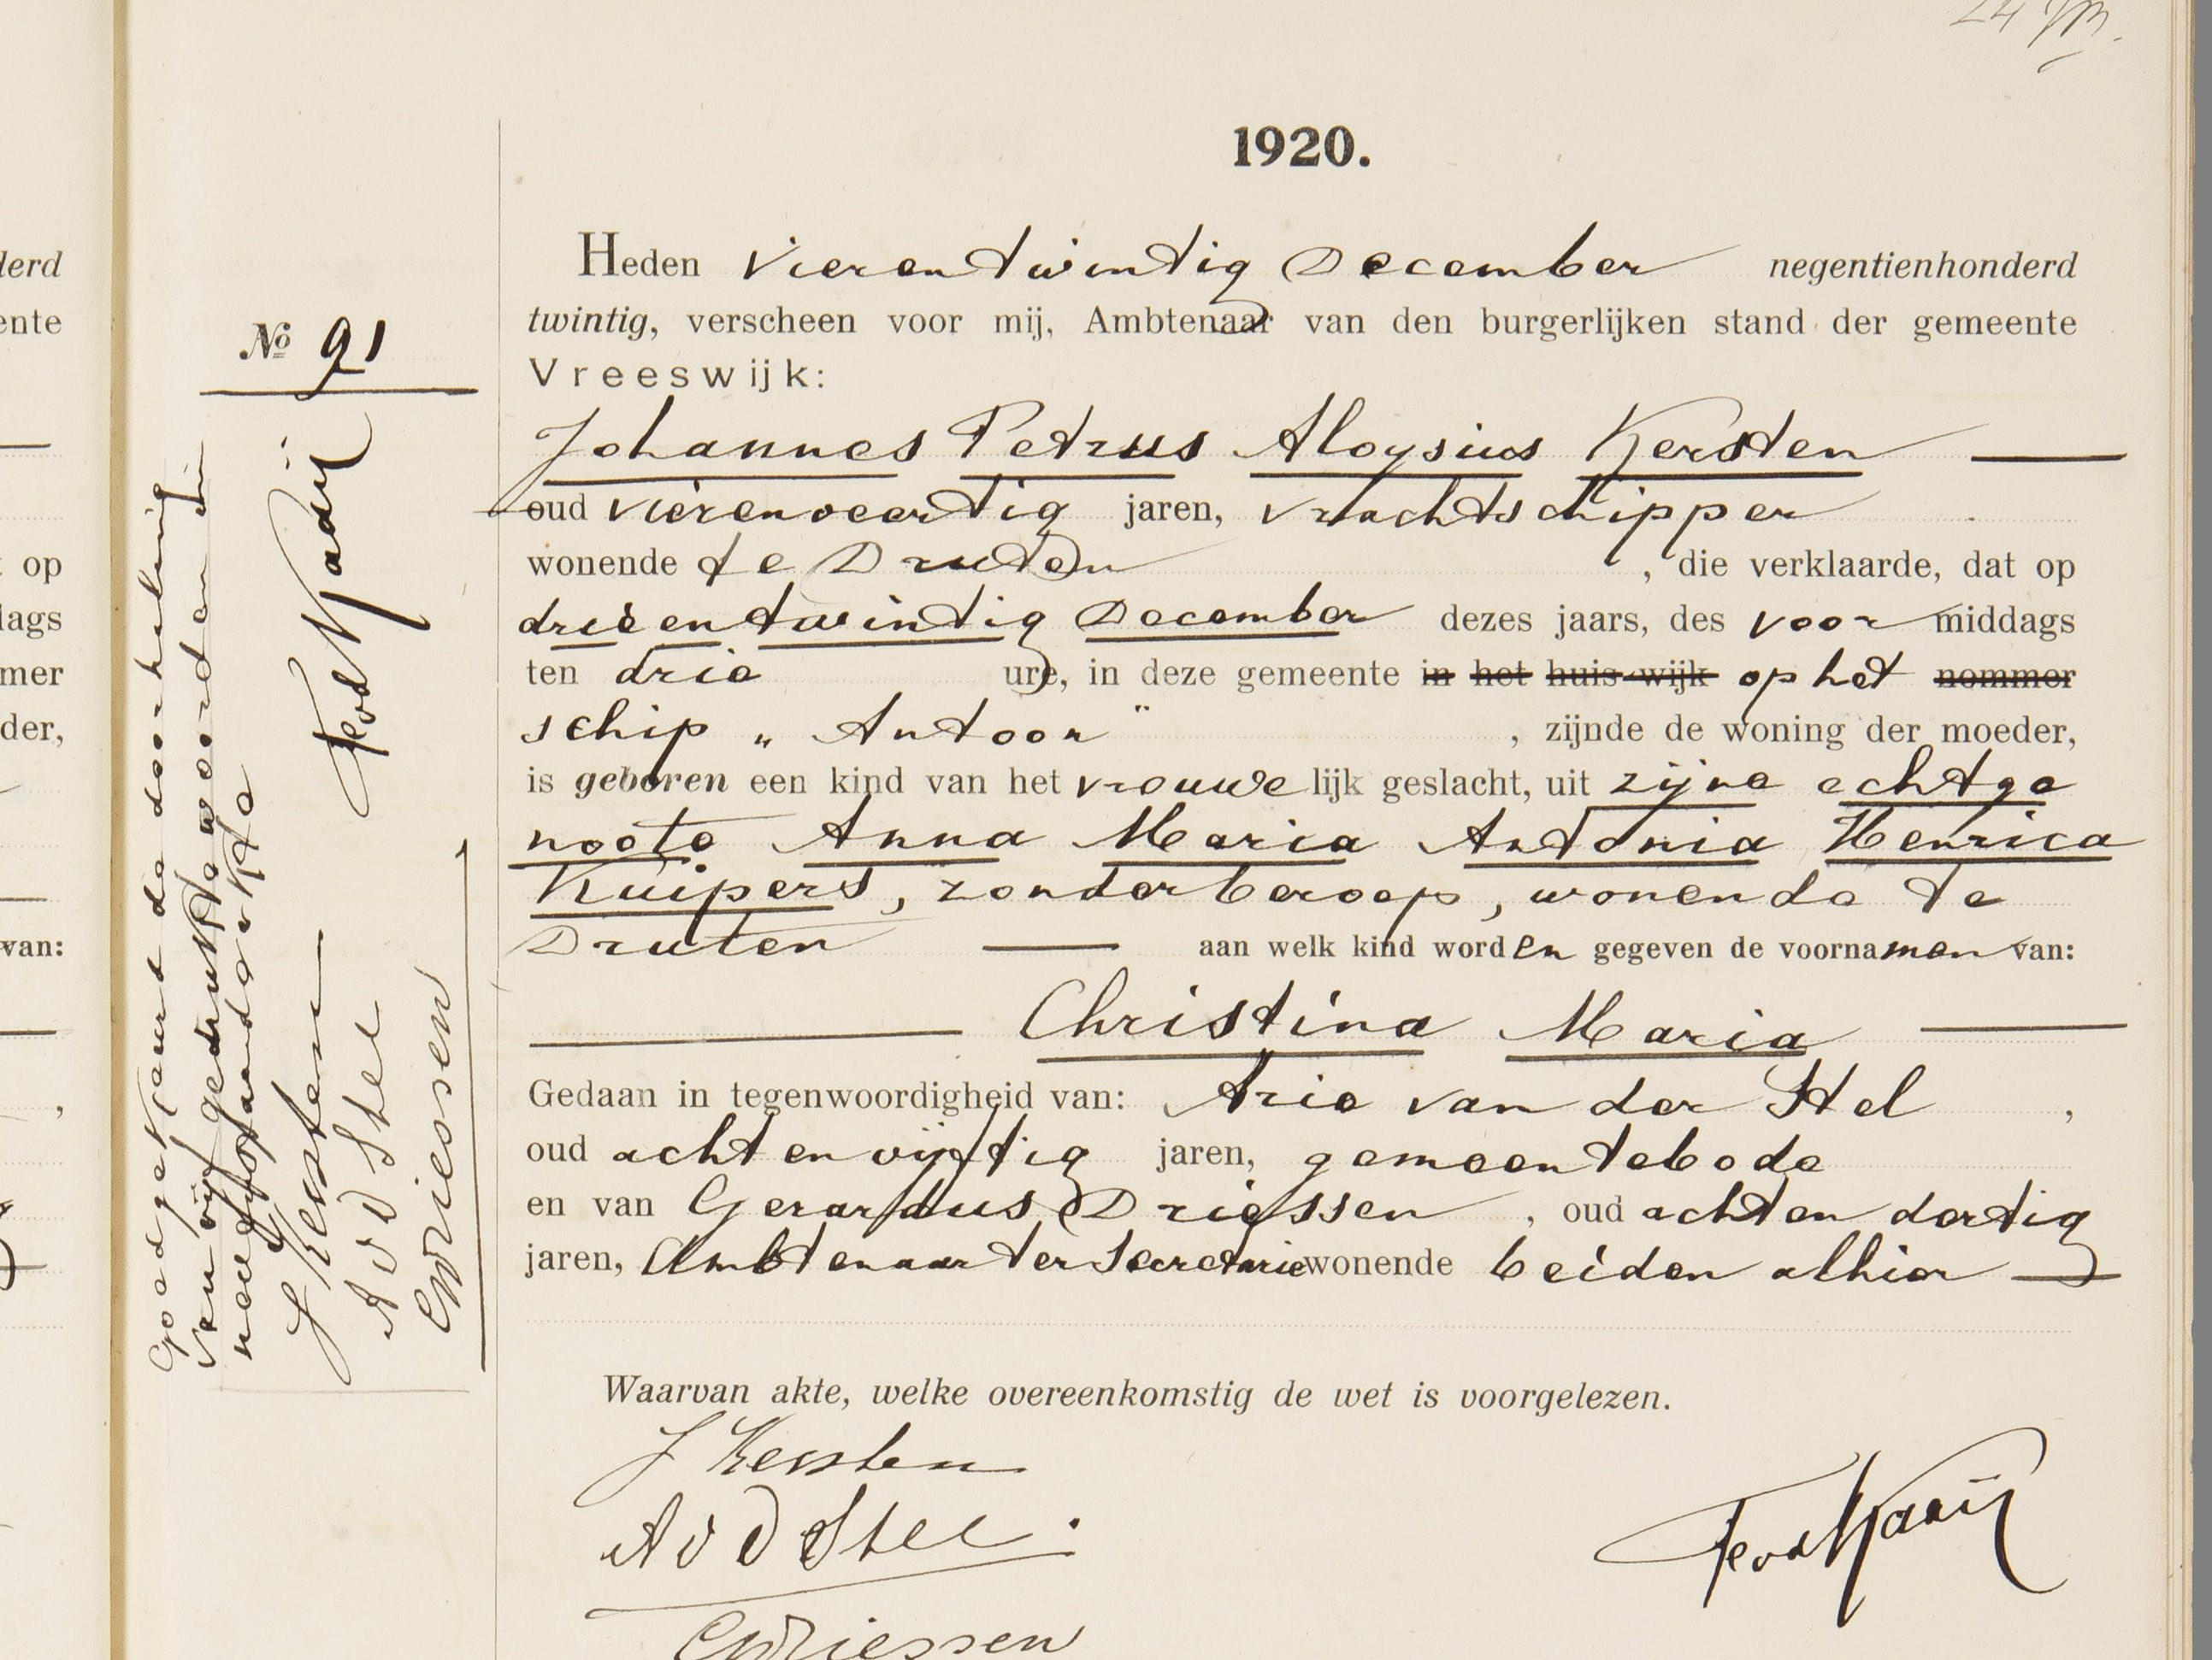 1920.
No 91
Heden Vierentwintig December negentienhonderd
twintig, verscheen voor mij, Ambtenaar van den burgerlijken stand der gemeente
Vreeswijk:
Johannes Petrus Aloysius Kersten
oud vierenveertig jaren, vrachtschipper
wonende te Druten, die verklaarde, dat op
drieentwintig December dezes jaars, des voormiddags
ten drie ure, in deze gemeente in het huis wijk op het nommer
schip „ Antoon ", zijnde de woning der moeder,
is geboren een kind van het vrouwelijk geslacht, uit zijne echtge
noote Anna Maria Antonia Henrica
Kuipers, zonder beroep, wonende te
Druten aan welk kind worden gegeven de voornamen van:
Christina Maria
Gedaan in tegenwoordigheid van: Arie van der Stel,
oud achtenvijftig jaren, gemeentebode
en van Gerardus Driessen, oud achtendertig
jaren, Ambtenaar ter Secretarie wonende beiden alhier
Waarvan akte, welke overeenkomstig de wet is voorgelezen.
J Kersten
A v d Stel
GDriessen
Goedgekeurd de doorhaling
van vijf gedrukte woorden in
nevenstaande akte
J Kersten
A v d Stel
GDriessen
lerd
ente
op
lags
mer
der,
van:
,